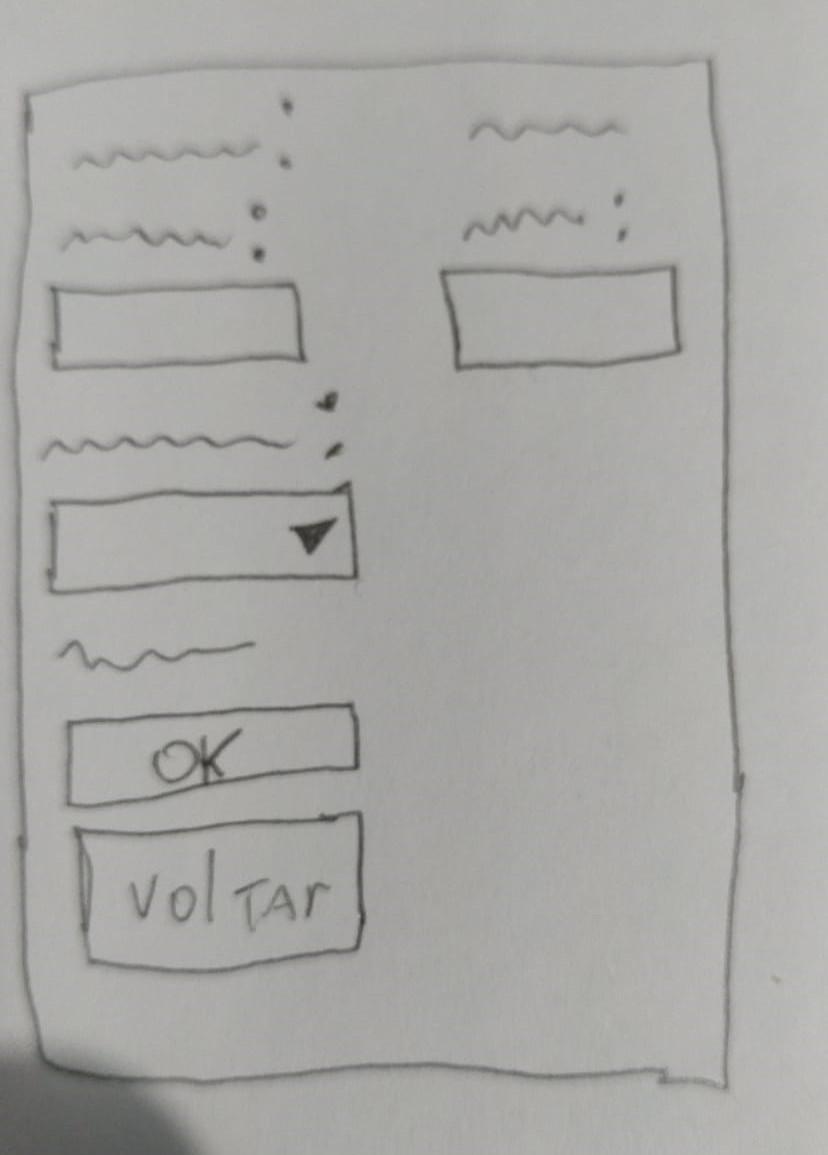 OK
VolTAr